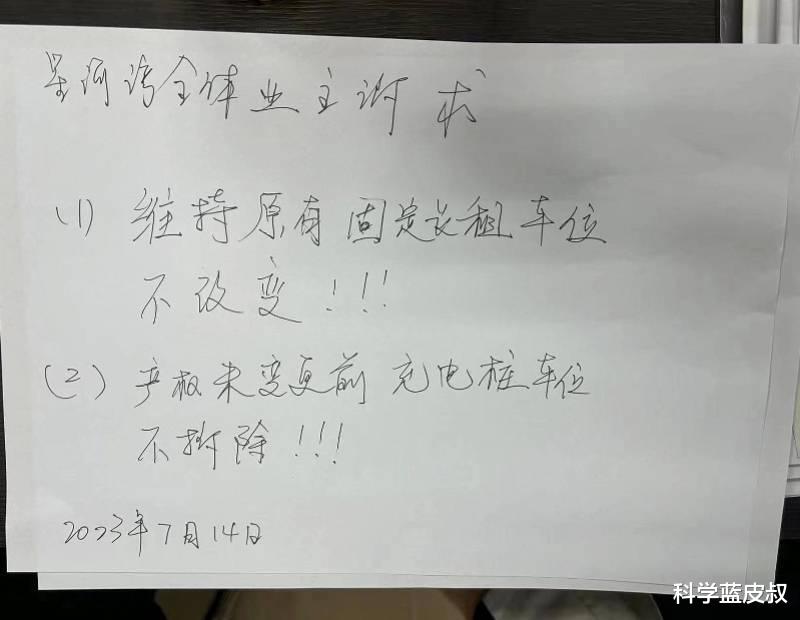 星河湾全体业主诉求
(1) 维持原有固定长租车位
不改变!!!
(2) 产权未变更前充电桩车位
不拆除!!!
2023年7月14日
科学蓝皮叔